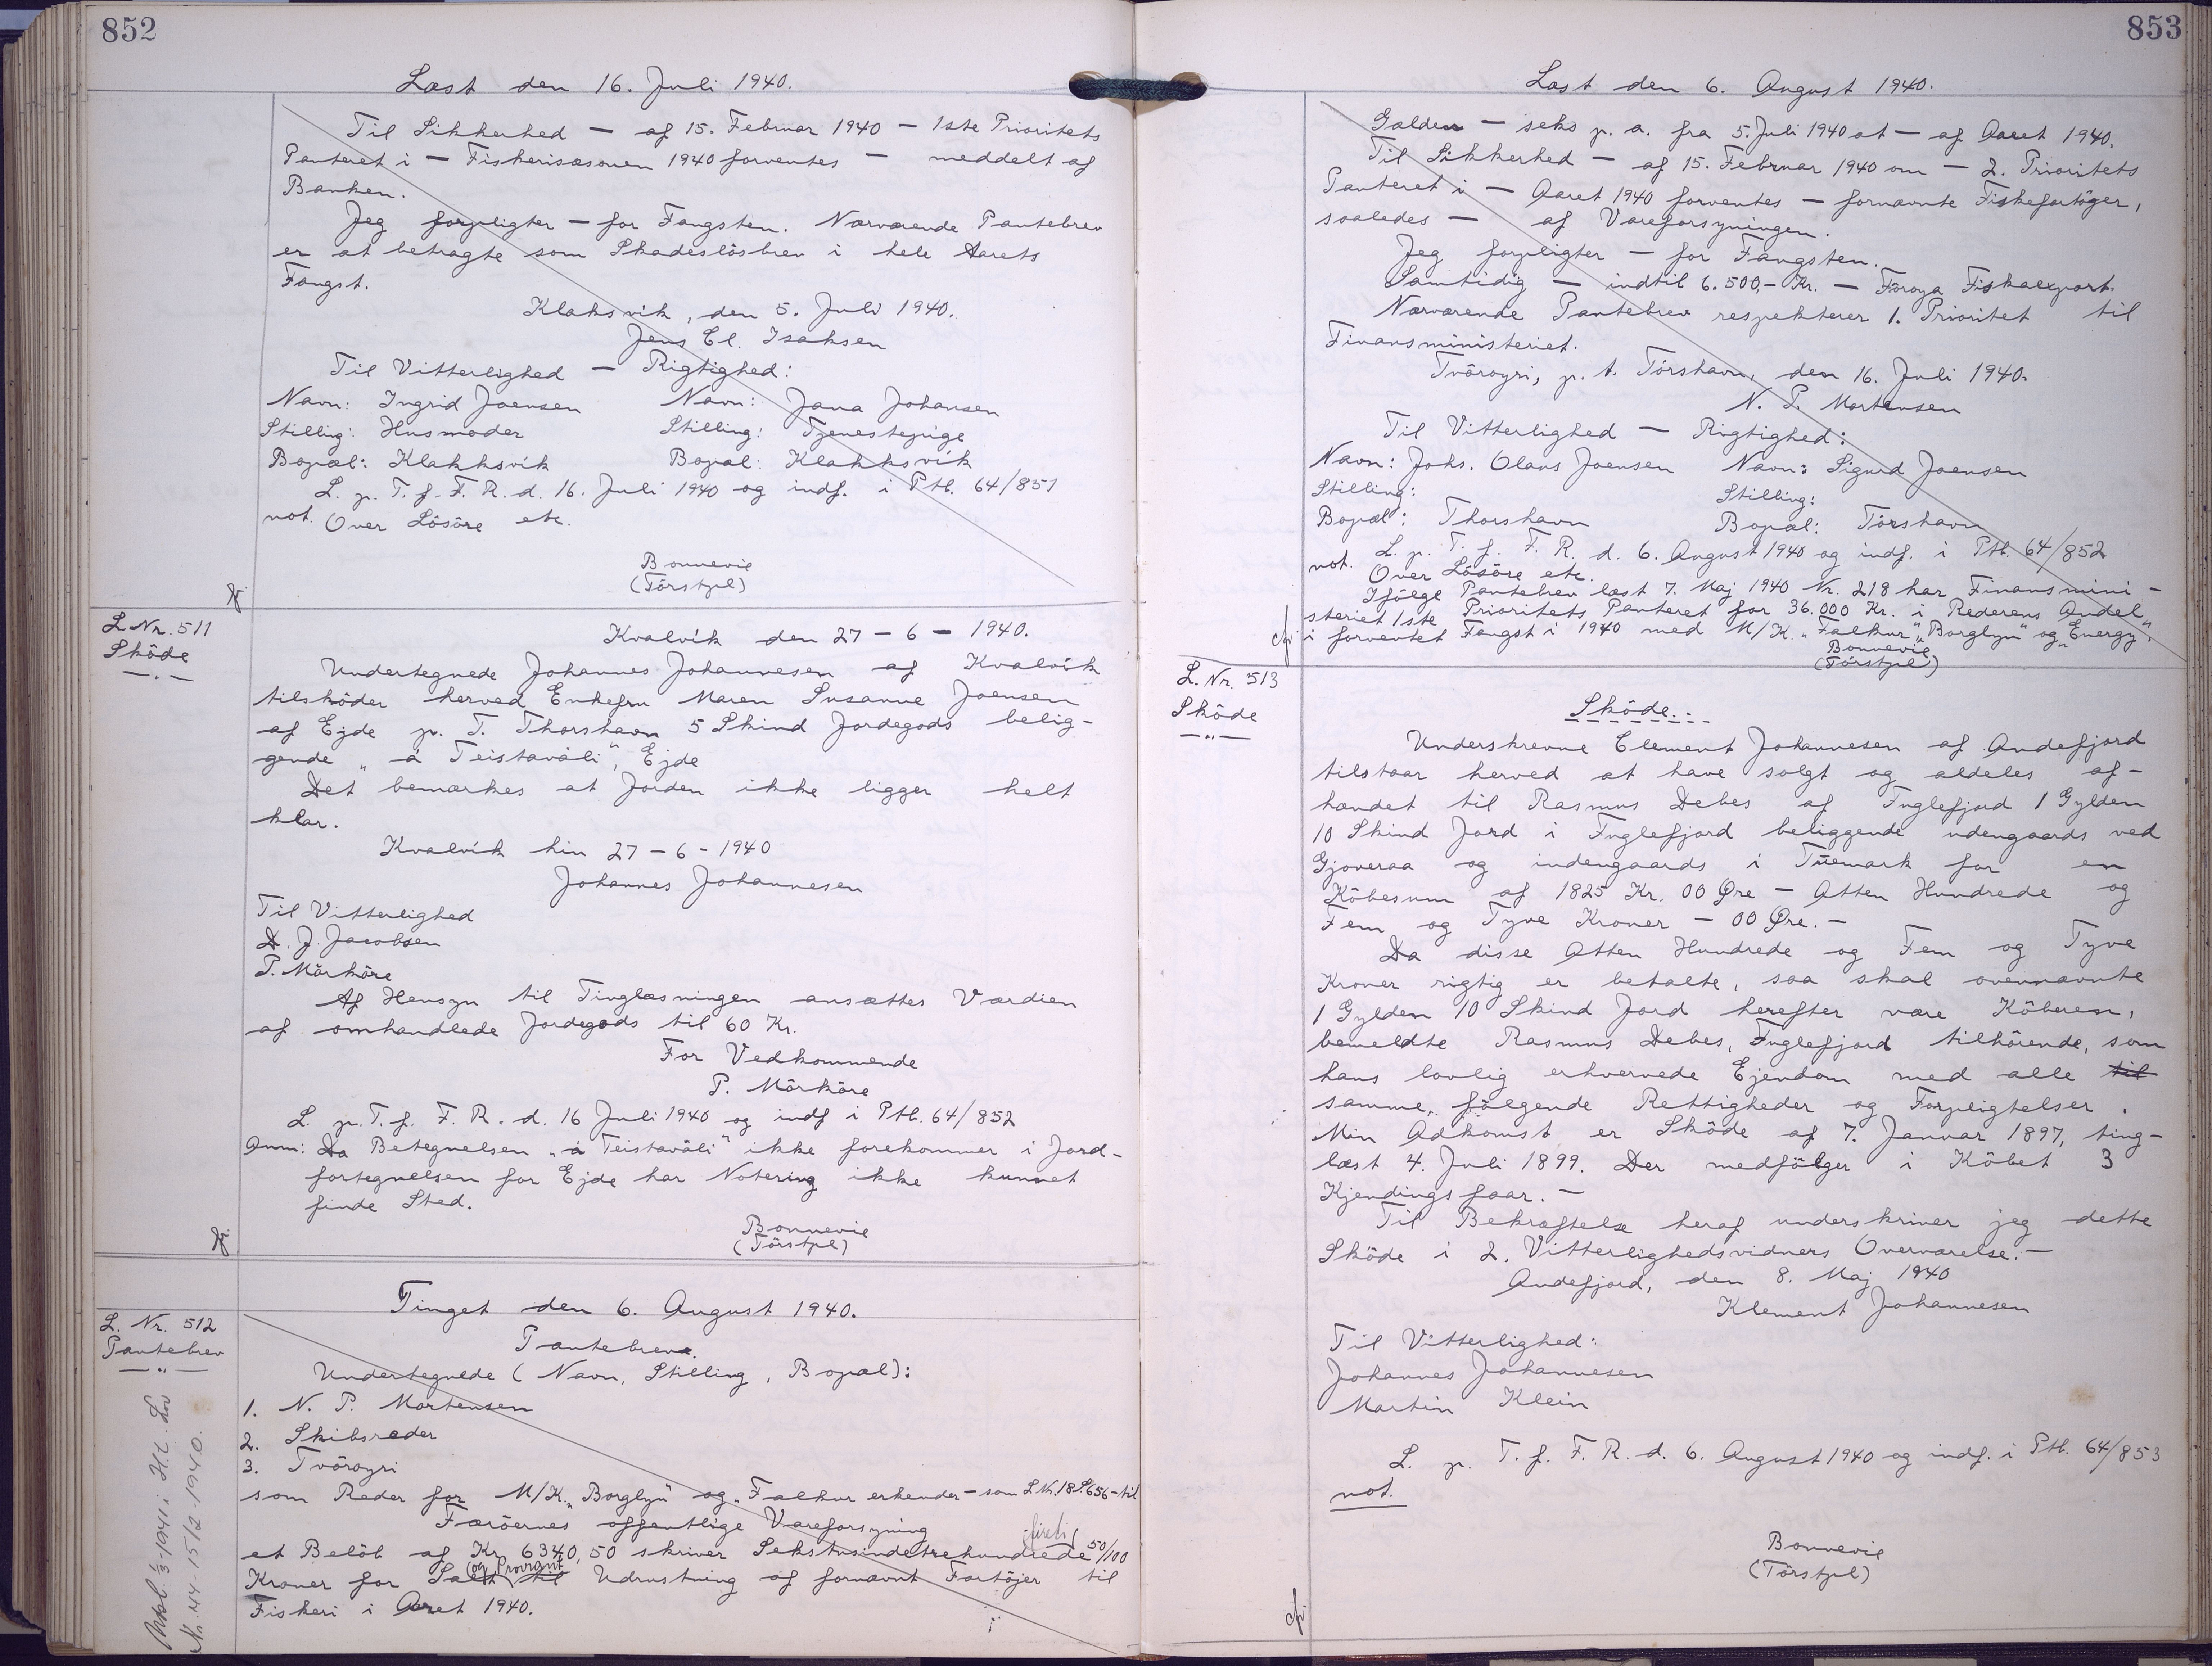 852
Læst den 16. Juli 1940.
Til Sikkerhed — af 15. Februar 1940 — 1ste Prioritets
Panteret i — Fiskerisæsonen 1940 forventes — meddelt af
Banken.
Jeg forpligter — for Fangsten. Nærværende Pantebrev
er at betragte som Skadeslösbrev i hele Aarets
Fangst.
Klaksvik, den 5. Juli 1940.
Jens El. Isaksen
Til Vitterlighed — Rigtighed:
Navn: Ingrid Joensen Navn: Jana Johansen
Stilling: Husmoder Stilling: Tjenestepige
Bopæl: Klakksvík Bopæl: Klakksvík
L. p. T. f. F. R. d. 16. Juli 1940 og indf. i Ptb. 64/851
not. Over Lösöre etc.
Bonnevie
(Törstpl)
L Nr. 511
Sköde
Kvalvík den 27 - 6 - 1940.
Undertegnede Johannes Johannesen af Kvalvík
tilsköder herved Enkefru Maren Susanne Joensen
af Ejde p. T. Thorshavn 5 Skind Jordegods belig-
gende „á Teistaváli", Ejde
Det bemærkes at Jorden ikke ligger helt
klar.
Kvalvík hin 27 - 6 - 1940
Johannes Johannesen
Til Vitterlighed
D. J. Jacobsen
P. Mörköre
Af Hensyn til Tinglæsningen ansættes Værdien
af omhandlede Jordegods til 60 Kr.
For Vedkommende
P. Mörköre
L. p. T. f. F. R. d. 16 Juli 1940 og indf i Ptb. 64/852
Anm: Da Betegnelsen „á Teistaváli" ikke forekommer i Jord-
fortegnelsen for Ejde har Notering ikke kunnet
finde Sted.
Bonnevie
(Törstpl)
Tinget den 6. August 1940.
L. Nr. 512
Pantebrev
Pantebrev.
Undertegnede (Navn, Stilling, Bopæl):
1. N. P. Mortensen
2. Skibsreder
3. Tvöroyri
som Reder for M/K. „Borglyn" og „Falkur erkender — som L Nr. 18 S. 656 — til
Færöernes offentlige Vareforsyning
firti (
et Belöb af Kr. 6340,50 skriver Sekstusindetrehundrede 50/100
og Proviant
Kroner for Salt til Udrustning af fornævnt Fartöjer til
Fiskeri i Aaret 1940.
Nr. 44 - 15/2 - 1940.
853
Læst den 6. August 1940.
Gælden — seks p. a. fra 5. Juli 1940 at — af Aaret 1940.
Til Sikkerhed — af 15. Februar 1940 om — 2. Prioritets
Panteret i — Aaret 1940 forventes — fornævnte Fiskefartöger,
saaledes — af Vareforsyningen.
Jeg forpligter — for Fangsten.
Samtidig — indtil 6.500,- Kr. — Föroya Fiskaexport.
Nærværende Pantebrev respekterer 1. Prioritet til
Finansministeriet.
Tvöroyri, p. t. Törshavn, den 16. Juli 1940.
N. P. Mortensen
Til Vitterlighed — Rigtighed:
Navn: Johs. Olavs Joensen Navn: Sigurd Joensen
Stilling: Stilling:
Bopæl: Thorshavn Bopæl: Törshavn
L. p. T. f. F. R. d. 6. August 1940 og indf. i Ptb. 64/852
not. Over Lösöre etc.
Ifölge Pantebrev læst 7. Maj 1940 Nr. 218 har Finansmini-
steriet 1ste Prioritets Panteret for 36.000 Kr. i Rederens Andel
i forventet Fangst i 1940 med M/K. „Falkur", „Borglyn" og „Energy".
Bonnevie
(Törstpl)
L. Nr. 513
Sköde
Sköde.
Underskrevne Clement Johannesen af Andefjord
tilstaar herved at have solgt og aldeles af-
hændet til Rasmus Debes af Fuglefjord 1 Gylden
10 Skind Jord i Fuglefjord beliggende udengaards ved
Gjoveraa og indengaards i Tüemark for en
Köbesum af 1825 Kr. 00 Øre — Atten Hundrede og
Fem og Tyve Kroner — 00 Øre. —
Da disse Atten Hundrede og Fem og Tyve
Kroner rigtig er betalte, saa skal ovennævnte
1 Gylden 10 Skind Jord herefter være Köberen,
bemeldte Rasmus Debes, Fuglefjord tilhörende, som
hans lovlig erhvervede Ejendom med alle til
samme, fölgende Rettigheder og Forpligtelser.
Min Adkomst er Sköde af 7. Januar 1897, ting-
læst 4. Juli 1899. Der medfölger i Köbet 3
Kjendingsfaar. —
Til Bekræftelse heraf underskriver jeg dette
Sköde i 2. Vitterlighedsvidners Overværelse. —
Andefjord, den 8. Maj 1940
Klement Johannesen
Til Vitterlighed:
Johannes Johannesen
Martin Klein
L. p. T. f. F. R. d. 6. August 1940 og indf. i Ptb. 64/853
not.
Bonnevie
(Törstpl)